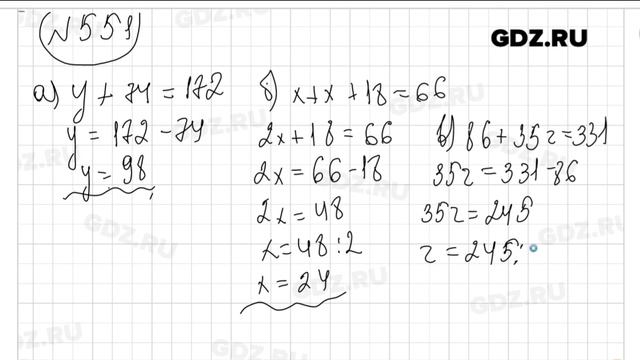 №551
GDZ.RU
а) y + 74 = 172
y = 172 - 74
y = 98
б) x+x+18=66
2x+18=66
2x=66-18
2x=48
x=48:2
x=24
в) 86+35z=331
35z=331-86
35z=245
z=245: